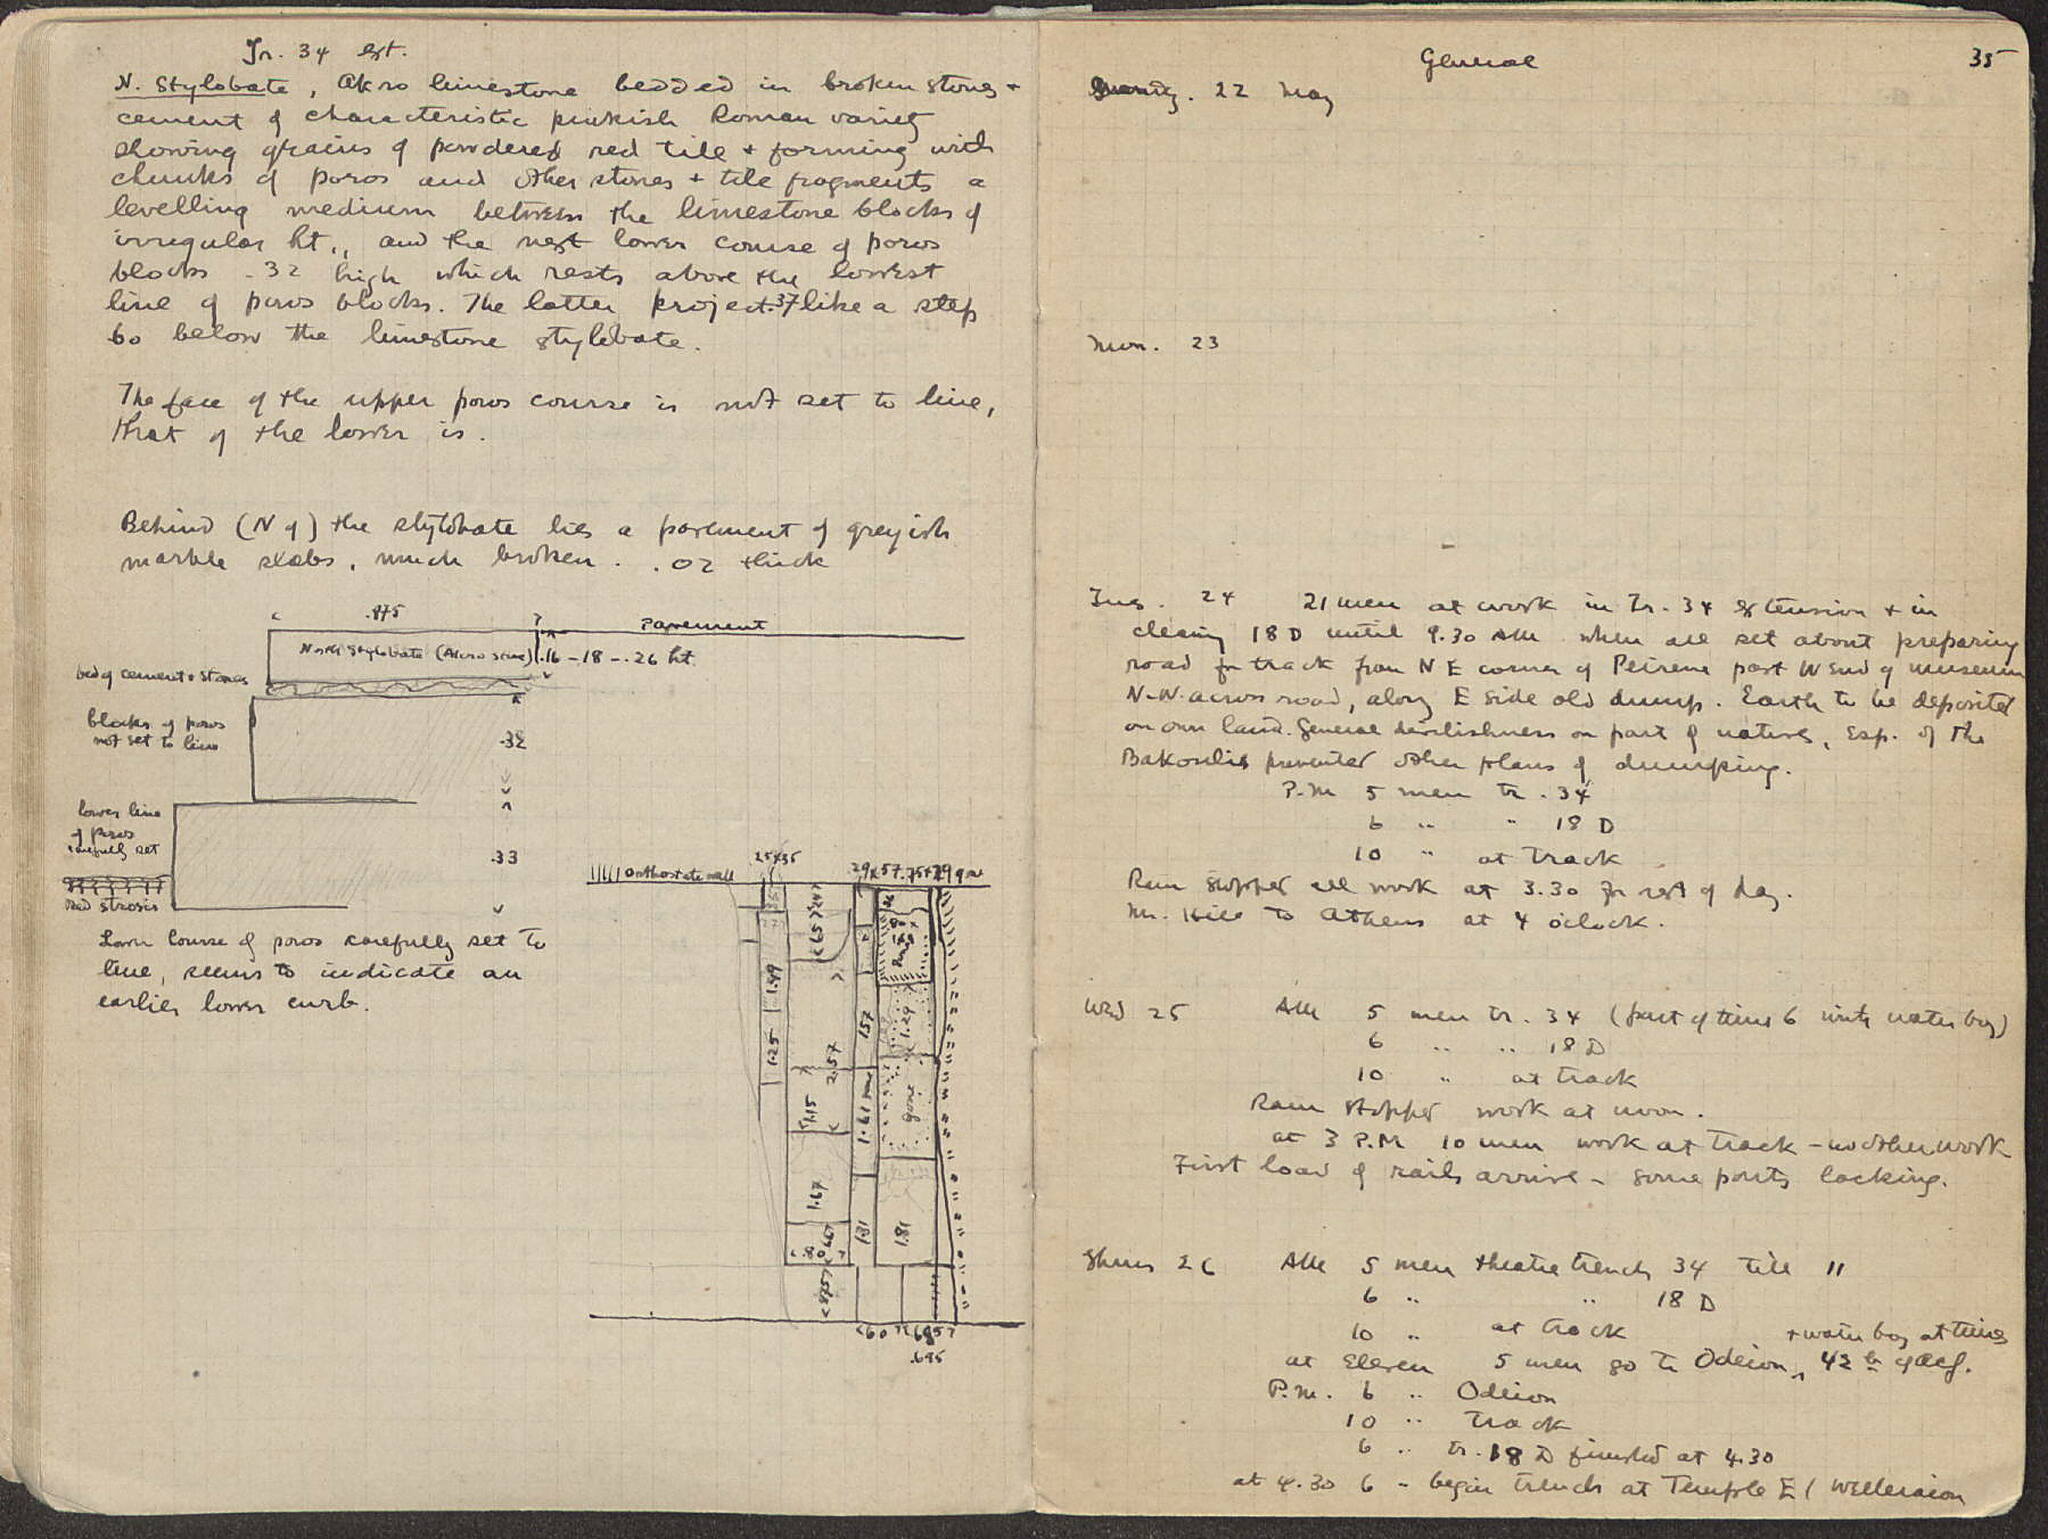 Tr. 34 ext.
N. Stylobate, Akro limestone bedded in broken stones +
cement of characteristic pinkish Roman variety
showing grains of powdered red tile + forming with
chunks of poros and other stones + tile fragments a
levelling medium between the limestone blocks of
irregular ht., and the next lower course of poros
blocks .32 high which rests above the lowest
line of poros blocks. The latter project .37 like a step
60 below the limestone stylobate.
The face of the upper poros course is not set to line,
that of the lower is.
Behind (N of) the stylobate lies a pavement of greyish
marble slabs, much broken. .02 thick
.875
Pavement
North Stylobate (Akro stone) .16 - 18 - .26 ht.
bed of cement + stones
blocks of poros
not set to line
.32
lower line
of poros
carefully set
.33
red strosis
Lower Course of poros carefully set to
line, seems to indicate an
earlier lower curb.
Orthostate wall
1.49
1.25
.65
2.57
1.15
1.67
.80
1.57
1.61
1.31
1.29
gone
1.81
.695
General 35
22 May
Mon. 23
Tues. 24 21 men at work in Tr. 34 extension + in
clearing 18 D until 9.30 AM when all set about preparing
road for track from N E corner of Peirene past W end of museum
N-W. across road, along E side old dump. Earth to be deposited
on own land. General devilishness on part of natives, esp. of the
prevented other plans of dumping.
P.M 5 men tr. 34
6 " " 18 D
10 " at track
Rain stopped all work at 3.30 for rest of day.
Mr. Hill to Athens at 4 o'clock.
Wed 25 AM 5 men tr. 34 (part of time 6 with water boy)
6 " " 18 D
10 " at track
Rain stopped work at noon.
at 3 P.M 10 men work at track - no other work
First load of rails arrive - some parts lacking.
Thurs 26 AM 5 men theatre trench 34 till 11
6 " " 18 D
10 " at track + water boy at times
at Eleven 5 men go to Odeion,
P.M. 6 " Odeion
10 " track
6 " tr. 18 D finished at 4.30
at 4.30 6 - begin trench at Temple E (